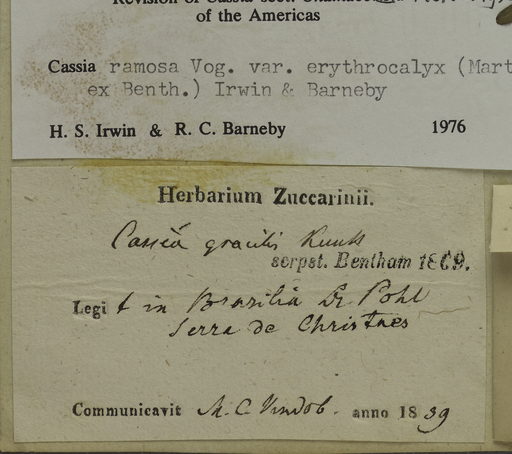 Revision of Cassia sect. Chamaecrista
of the Americas
Cassia ramosa Vog. var. erythrocalyx (Mart
ex Benth.) Irwin & Barneby
H. S. Irwin & R. C. Barneby 1976
Herbarium Zuccarinii.
Cassia gracilis Kunth
scrpst. Bentham 1869.
Legi t in Brasilia Dr Pohl
Serra de Christaes
Communicavit M. C. Vindob. anno 1839